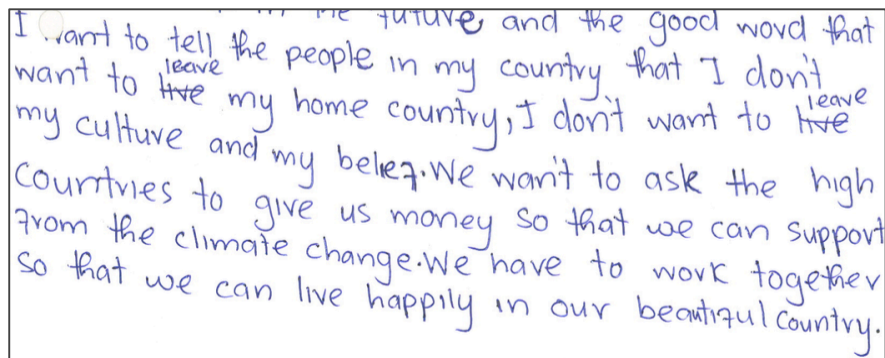 future and the good word that
I want to tell the people in my country that I don't
want to live leave my home country, I don't want to live leave
my culture and my belief. We wan't to ask the high
countries to give us money so that we can support
from the climate change. We have to work together
so that we can live happily in our beautiful country.